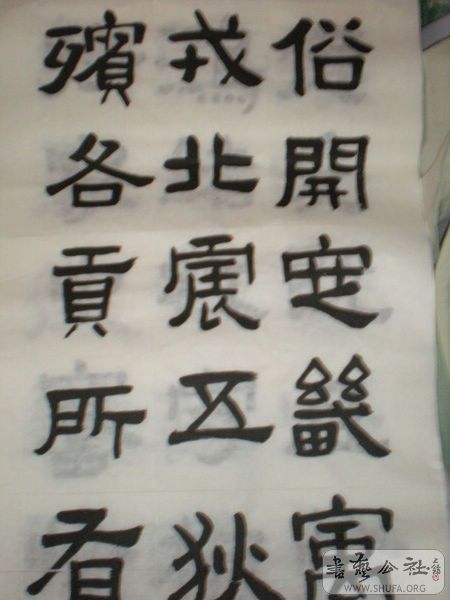 俗開定畿寓
戎北震五狄
殯各貢所有
書藝公社
WWW.SHUFA.ORG